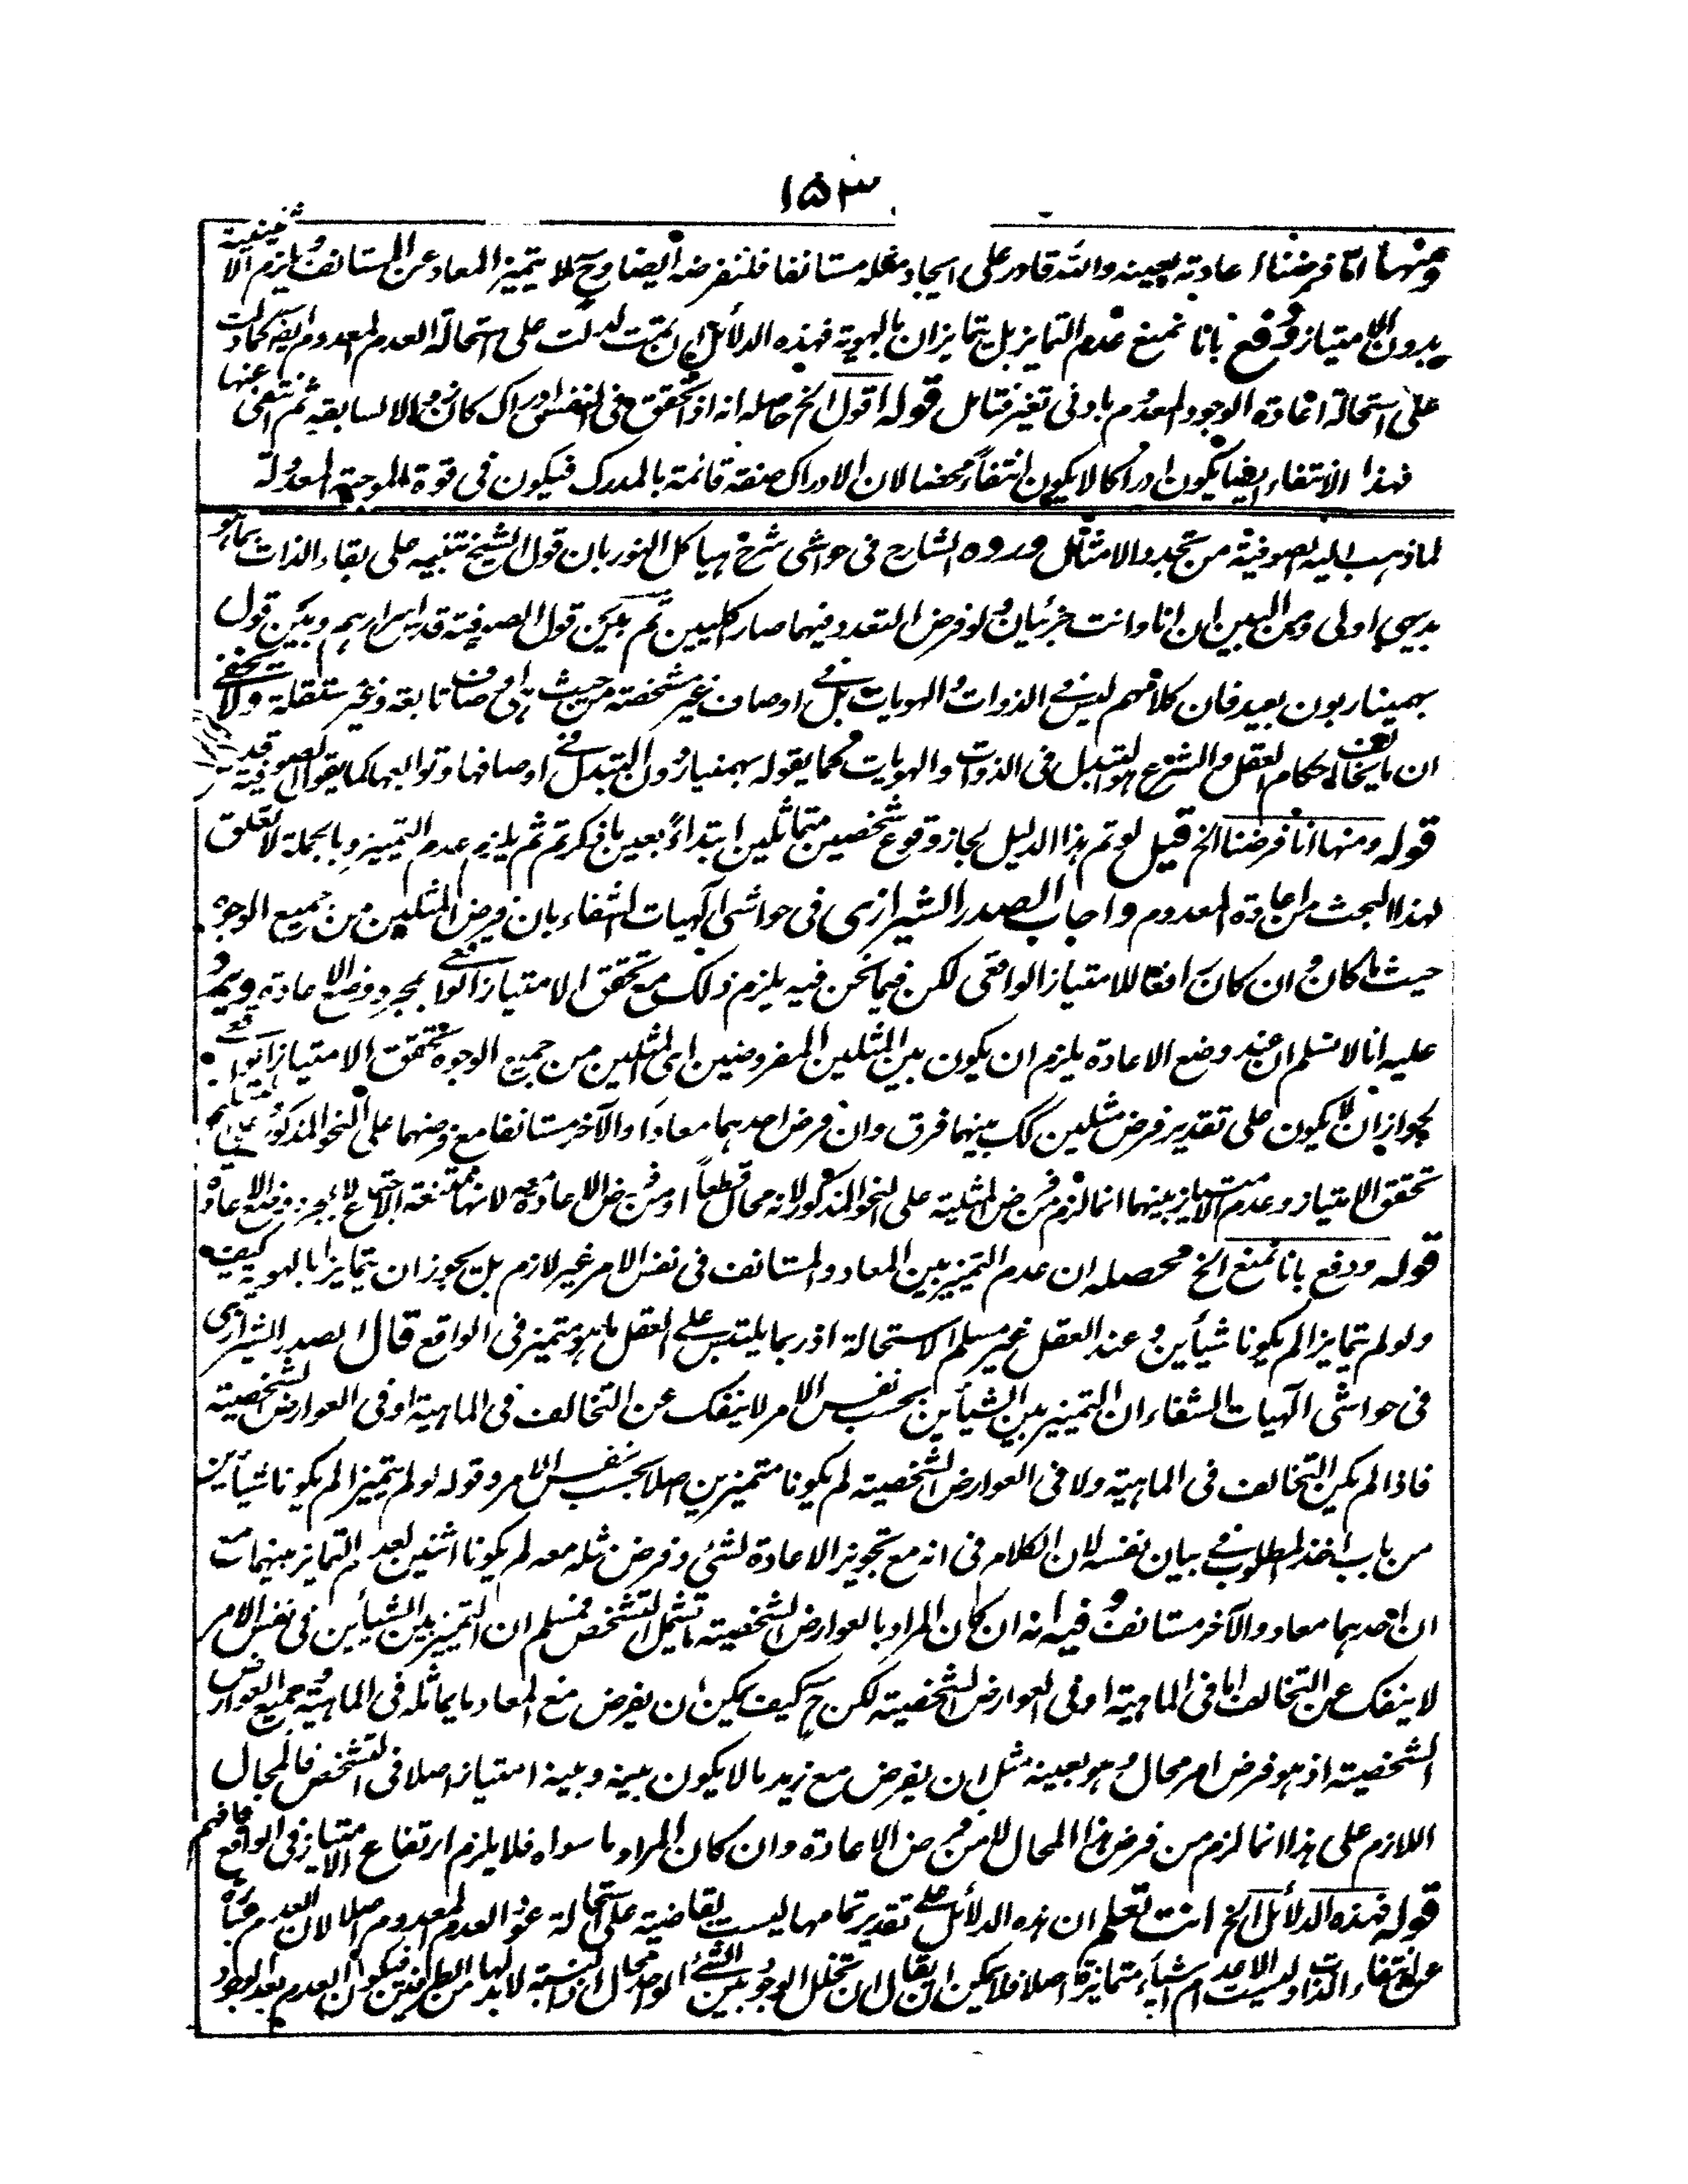 ١٥٣
ومنها انا فرضنا اعادته بعينه والله قادر على ايجاد مثله مستانفا فلنفرضه ايضا وح لا يتميز المعاد عن المستانف ويلزم الاثنينية
بدون الامتياز ودفع بانا نمنع عدم التمايز بل يتمايزان بالهوية فهذه الدلائل ان تمت لدلت على استحالة العدم المعدوم ايضا كما دلت
على استحالة اعادة الوجود المعدوم بادنى تغير فتامل قوله اقول الخ حاصله انه اذا تحقق فى النفس ادراك كان زوالا لسابقه ثم انتفى عنها
فهذا الانتفاء ايضا يكون ادراكا لا يكون انتفاءً محضا لان الادراك صفة قائمة بالمدرك فيكون فى قوة الموجبة المعدولة
لما ذهب اليه الصوفية من تجدد الامثال ورده الشارح فى حواشى شرح هياكل النور بان قول الشيخ تنبيه على بقاء الذات بما هو
بديهى اولى ومن البين ان انا وانت جزئيان ولو فرض التعدد فيهما صارا كليين ثم بين قول الصوفية قدس اسرارهم وبين قول
بهمنيار بون بعيد فان كلامهم ليس فى الذوات والهويات بل فى اوصاف غير مشخصة من حيث هى اوصاف تابعة وغير مستقلة ولا يخفى
ان ما يخالف احكام العقل والشرع هو التبدل فى الذوات والهويات كما يقوله بهمنيار دون التبدل فى اوصافها وتوابعها كما يقوله الصوفية
قوله ومنها انا فرضنا الخ قيل لو تم هذا الدليل لجاز وقوع شخصين متماثلين ابتداءً بعين ما ذكرتم ثم يلزم عدم التميز وبالجملة لا تعلق
لهذا البحث من اعادة المعدوم واجاب الصدر الشيرازى فى حواشى آلهيات الشفاء بان فرض المثلين من جميع الوجوه
حيث ما كان وان كان رافعا للامتياز الواقعى لكن فيما نحن فيه يلزم ذلك مع تحقق الامتياز الواقعى بمجرد وضع الاعادة ويرد
عليه انا لا نسلم ان عند وضع الاعادة يلزم ان يكون بين المثلين المفروضين اى المثلين من جميع الوجوه تحقق الامتياز الواقعى
لجواز ان لا يكون على تقدير فرض مثلين كك بينهما فرق وان فرض احدهما معادا والآخر مستانفا مع فرضهما على النحو المذكور
تحقق الامتياز وعدم الامتياز بينهما انما لزم من فرض المثلية على النحو المذكور لانه محال قطعاً او من فرض الاعادة معه لانها ممتنعة الاجتماع لا بمجرد وضع الاعادة
قوله ودفع بانا نمنع الخ محصله ان عدم التميز بين المعاد والمستانف فى نفس الامر غير لازم بل يجوز ان يتمايزا بالهوية كيف
ولو لم يتمايزا لم يكونا شيأين وعند العقل غير مسلم الاستحالة اذ ربما يلتبس على العقل ما هو متميز فى الواقع قال الصدر الشيرازى
فى حواشى آلهيات الشفاء ان التميز بين الشيأين بحسب نفس الامر لا ينفك عن التخالف فى الماهية او فى العوارض الشخصية
فاذا لم يكن التخالف فى الماهية ولا فى العوارض الشخصية لم يكونا متميزين اصلا بحسب نفس الامر وقوله لو لم يتميزا لم يكونا شيأين
من باب اخذ المطلوب فى بيان نفسه لان الكلام فى انه مع تجويز الاعادة لشئ وفرض مثله معه لم يكونا اثنين لعدم التمايز بينهما مع
ان احدهما معاد والآخر مستانف وفيه انه ان كان المراد بالعوارض الشخصية ما تشمل التشخص فمسلم ان التميز بين الشيأين فى نفس الامر
لا ينفك عن التخالف اما فى الماهية او فى العوارض الشخصية لكن ح كيف يمكن ان يفرض مع المعاد ما يماثله فى الماهية وجميع العوارض
الشخصية اذ هو فرض امر محال وهو بعينه مثل ان يفرض مع زيد ما لا يكون بينه وبينه امتياز اصلا فى التشخص فالمحال
اللازم على هذا انما لزم من فرض هذا المحال لا من فرض الاعادة وان كان المراد ما سواه فلا يلزم ارتفاع الامتياز فى الواقع فافهم
قوله فهذه الدلائل الخ انت تعلم ان هذه الدلائل على تقدير تمامها ليست بقاضية على استحالة عود العدم المعدوم اصلا لان العدم عبارة
عن انتفاء الذات وليست الاعدام اشياء متمايزة اصلا فلا يمكن ان يقال ان تخلل الوجود بين الشئ الواحد محال اذ النسبة لابد لها من الطرفين فيكون العدم بعد الوجود